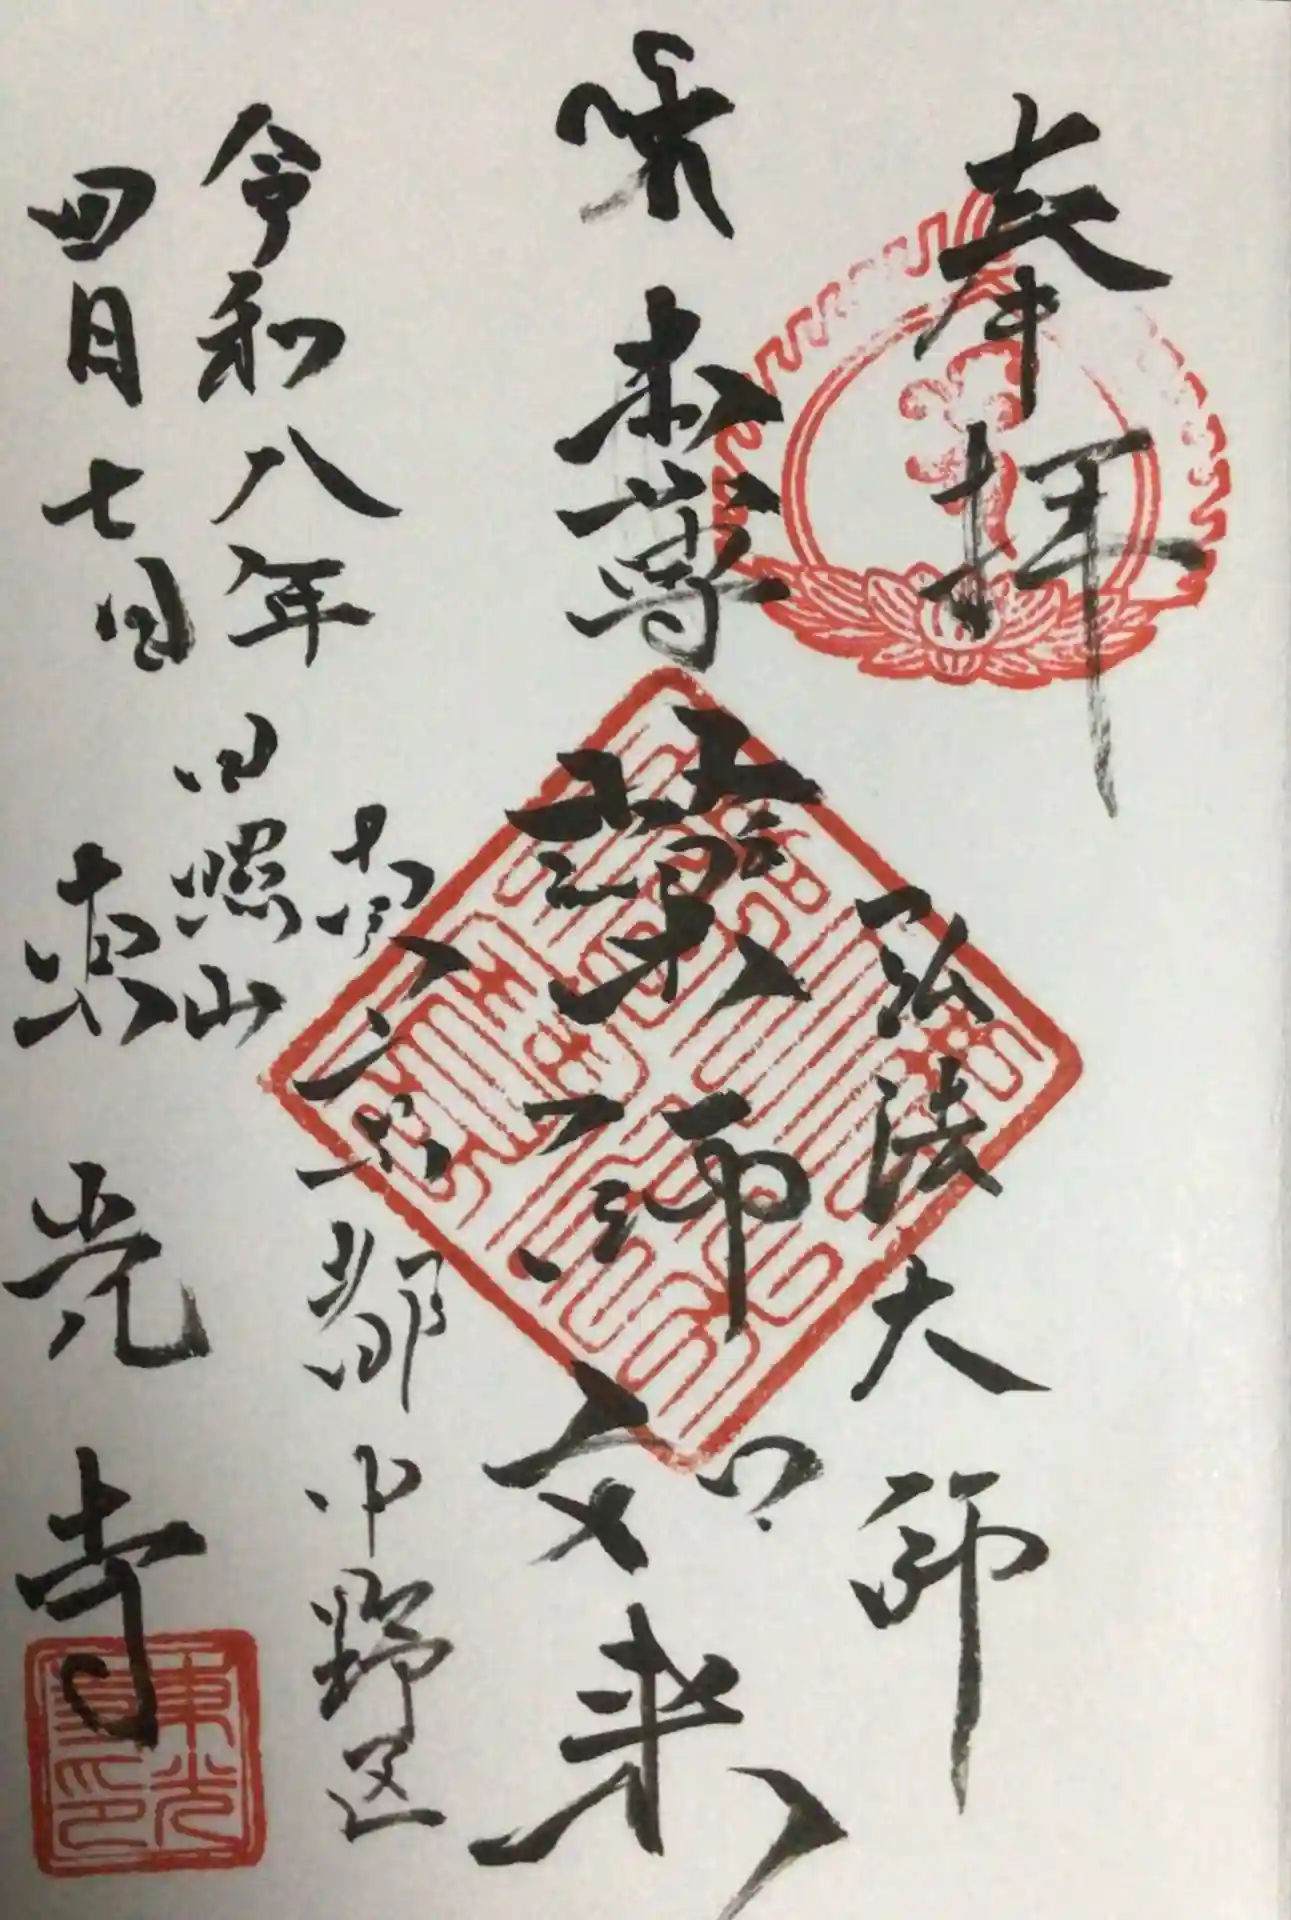 奉拝
弘法大師
本尊
薬師如来
東京都中野区
令和八年
四月七日
日照山
東光寺
東光寺印